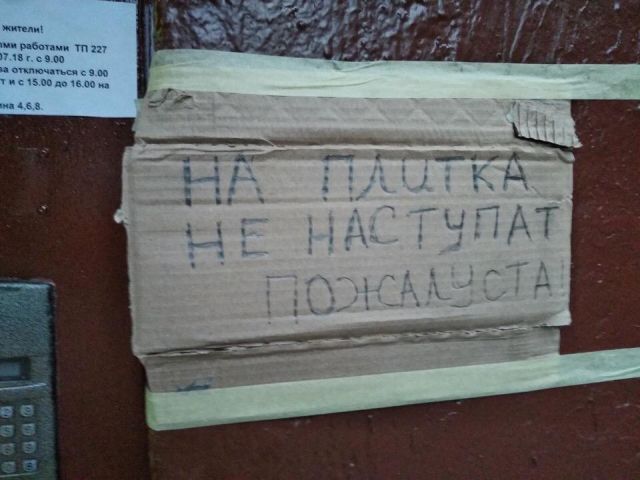 жители!
ыми работами ТП 227
07.18 г. с 9.00
ва отключаться с 9.00
т и с 15.00 до 16.00 на
на 4,6,8.
НА ПЛИТКА
НЕ НАСТУПАТ
ПОЖАЛУСТА!